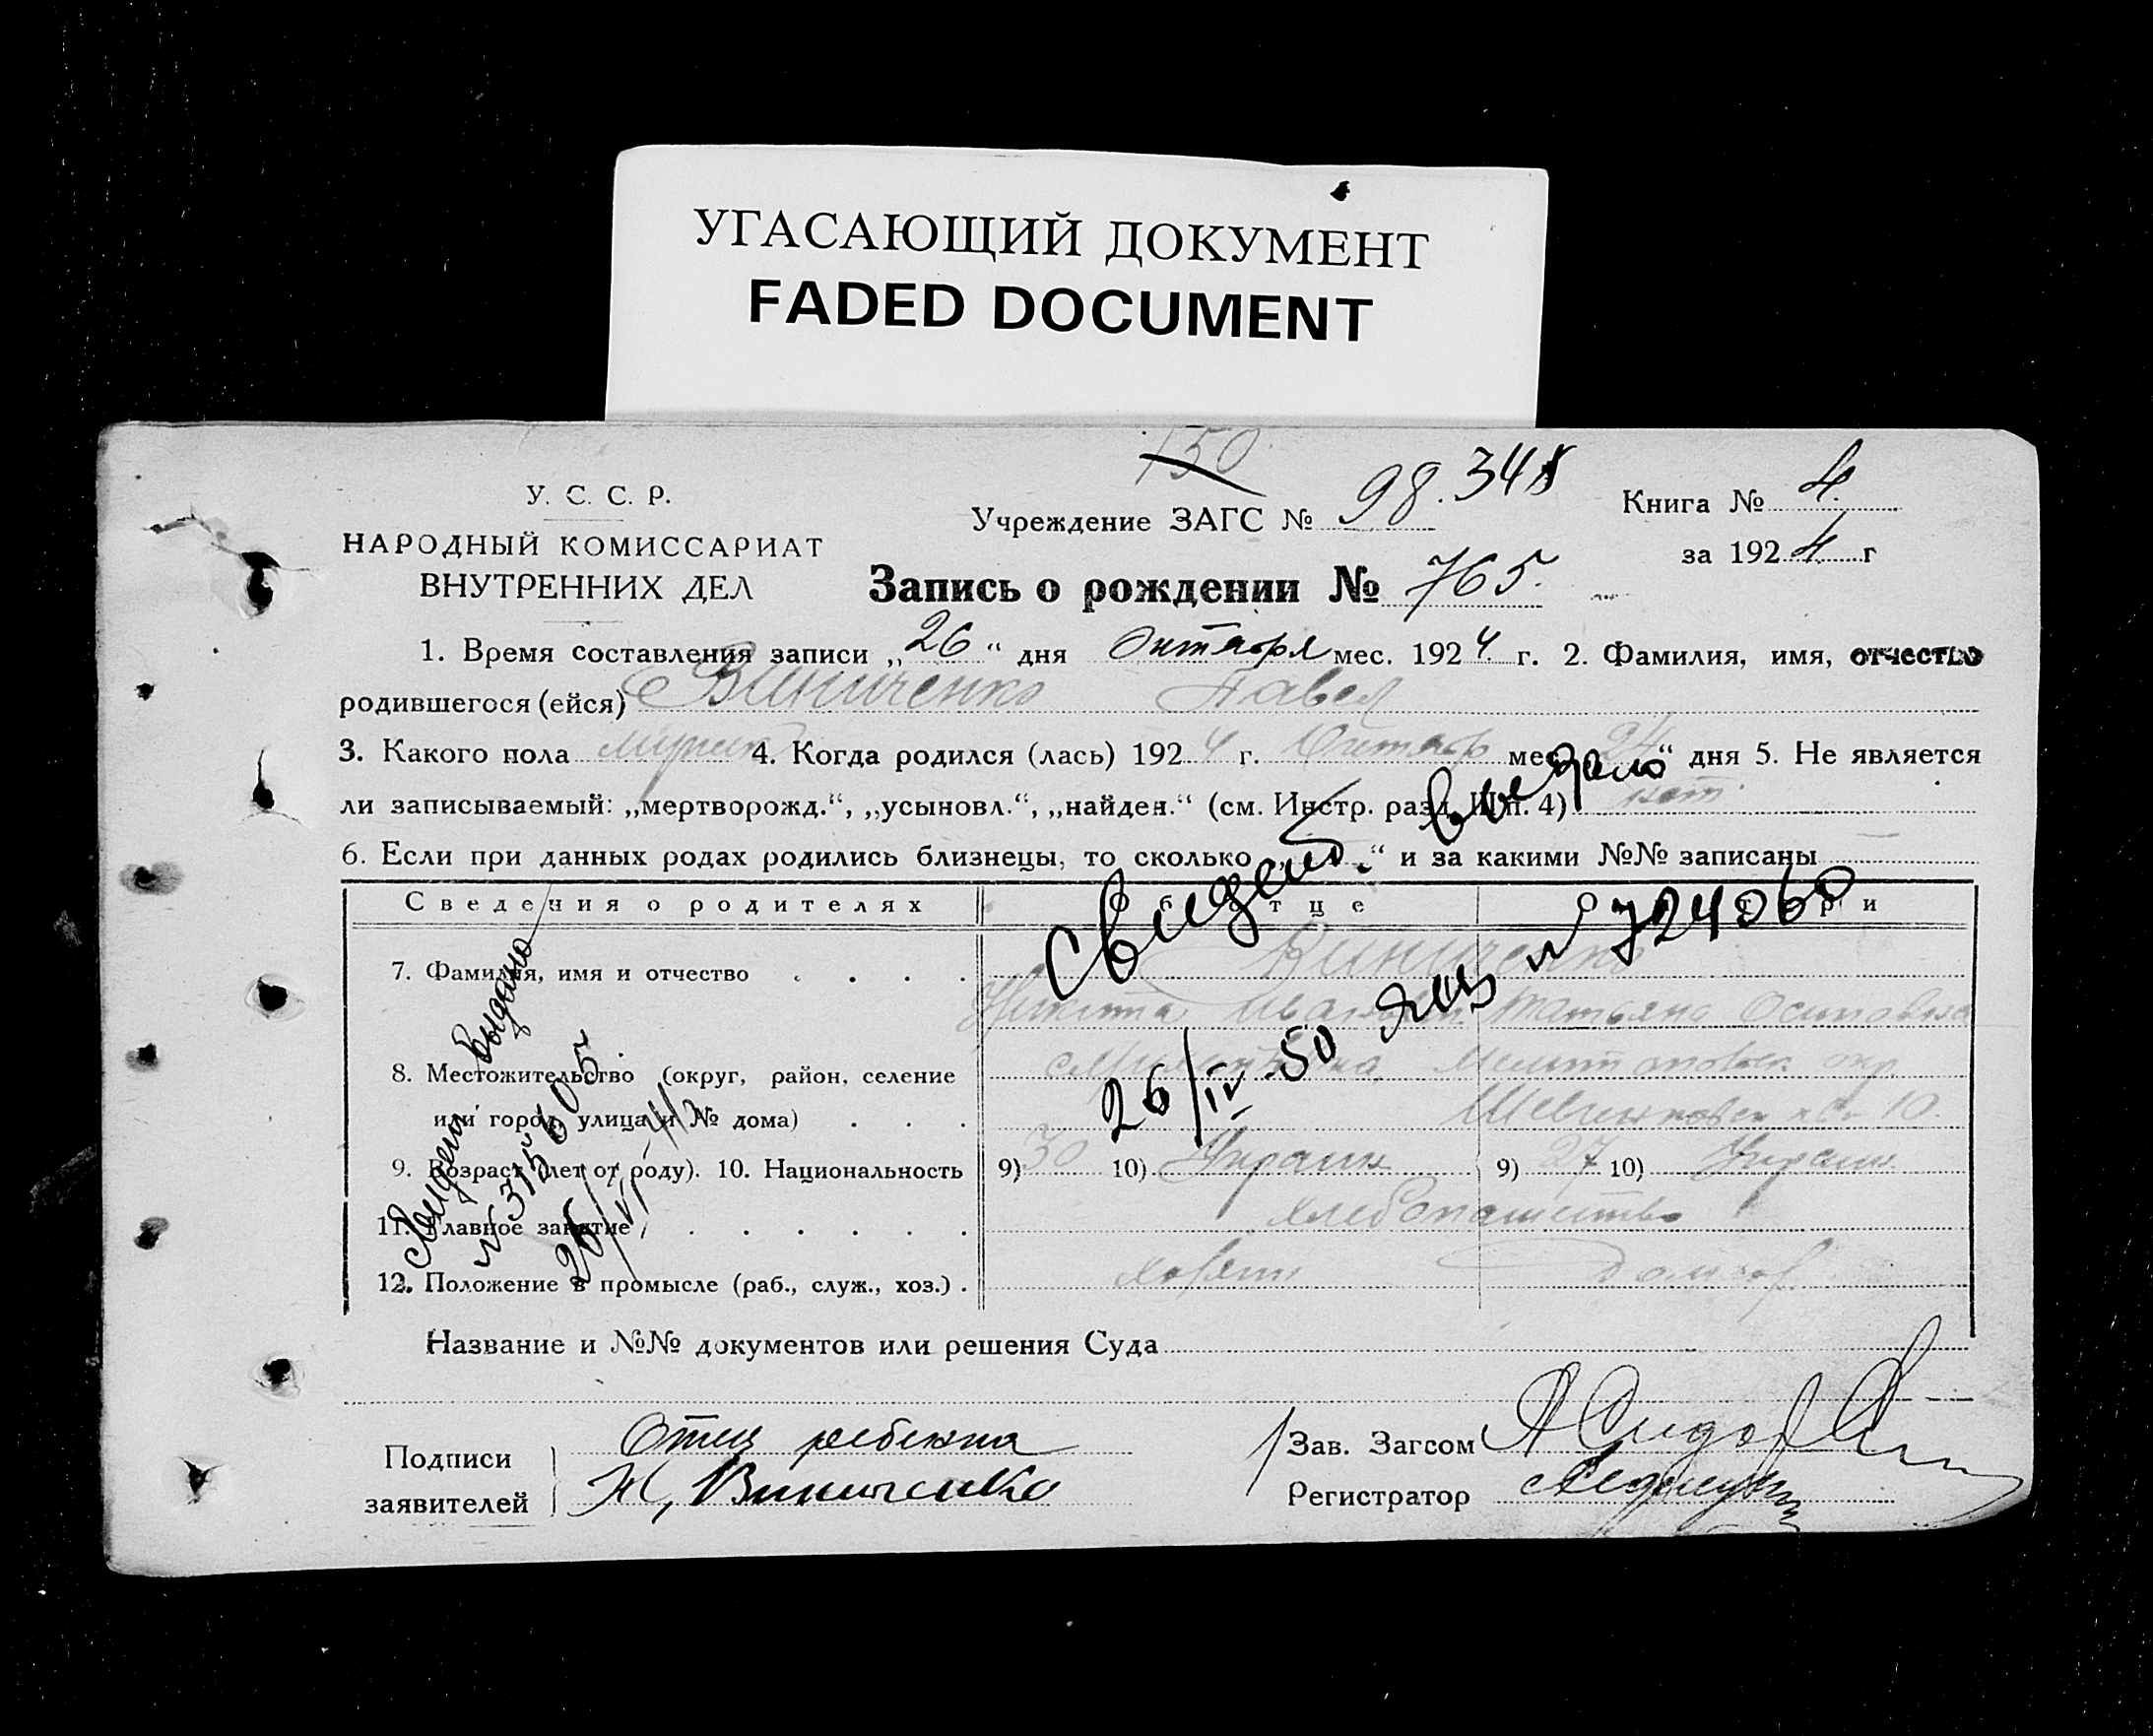 УГАСАЮЩИЙ ДОКУМЕНТ
FADED DOCUMENT
150
У. С. С. Р.
НАРОДНЫЙ КОМИССАРИАТ
ВНУТРЕННИХ ДЕЛ
Учреждение ЗАГС № 98.348
Книга № 4.
за 1924 г
Запись о рождении № 765.
1. Время составления записи „26“ дня Октября мес. 1924 г. 2. Фамилия, имя, отчество
родившегося (ейся) Виниченко Павел
3. Какого пола мужск 4. Когда родился (лась) 1924 г. Октябр мес. „24“ дня 5. Не является
ли записываемый: „мертворожд.“, „усыновл.“, „найден.“ (см. Инстр. разд. III п. 4) нет.
6. Если при данных родах родились близнецы, то сколько „ “ и за какими №№ записаны
Сведения о родителях Об отце О матери
7. Фамилия, имя и отчество . . . . Виниченко
Никита Иванович Татьяна Осиповна
8. Местожительство (округ, район, селение
или город, улица и № дома) . . . 10.
9. Возраст (лет от роду). 10. Национальность 9) 30 10) Украин 9) 27 10) Украин.
11. Главное занятие . . . . . . хлебопашество
12. Положение в промысле (раб., служ., хоз.) . хозяин
Название и №№ документов или решения Суда
Подписи
заявителей
Отец ребенка
Н, Виниченко
Зав. Загсом
Регистратор
Свидет. выдано
26/IV 50 ЯЮ № 724060
Свидет выдано
№ 315605.
26/VI-41